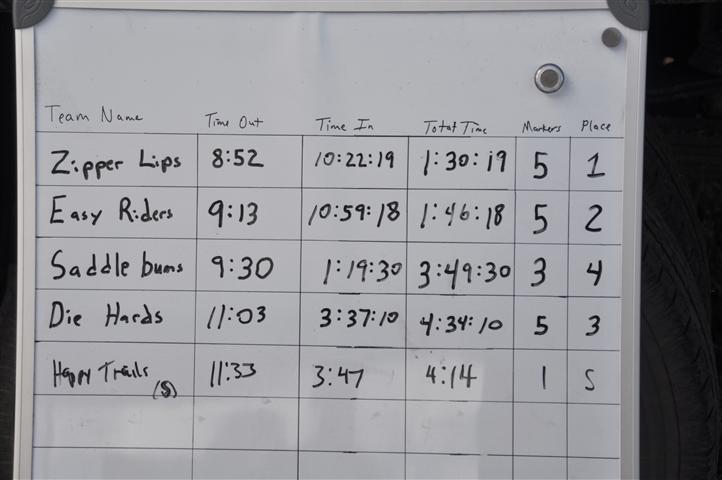 Team Name Time Out Time In Total Time Markers Place
Zipper Lips 8:52 10:22:19 1:30:19 5 1
Easy Riders 9:13 10:59:18 1:46:18 5 2
Saddle bums 9:30 1:19:30 3:49:30 3 4
Die Hards 11:03 3:37:10 4:34:10 5 3
Happy Trails 11:33 3:47 4:14 1 5
(5)